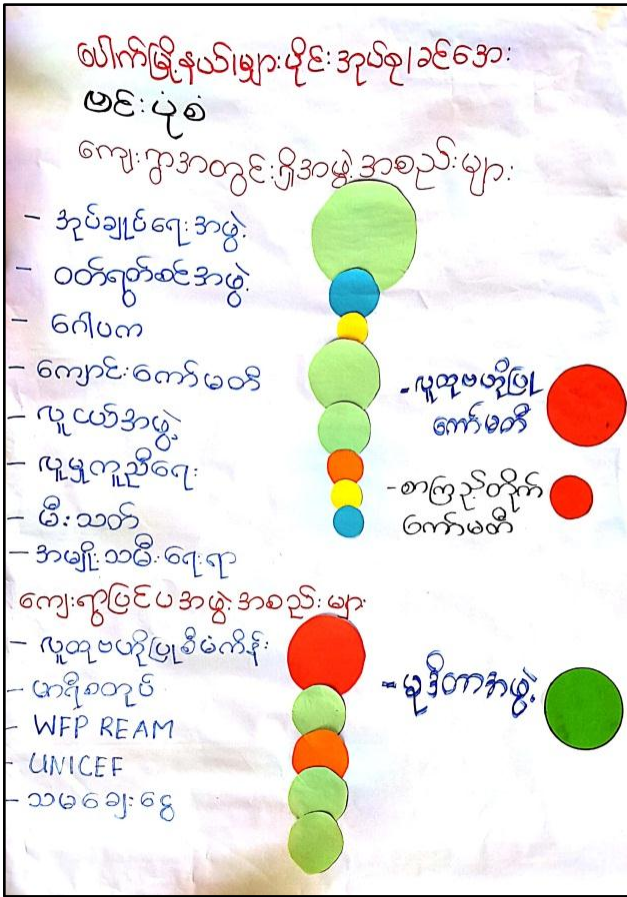 ပေါက်မြို့နယ်၊များပိုင်းအုပ်စု၊ခင်အေး
ဗင်းပုံစံ
ကျေးရွာအတွင်းရှိအဖွဲ့အစည်းများ
- အုပ်ချုပ်ရေးအဖွဲ့
- ဝတ်ရွတ်စဉ်အဖွဲ့
- ဂေါပက
- ကျောင်းကော်မတီ
- လူငယ်အဖွဲ့
- လူမှုကူညီရေး
- မီးသတ်
- အမျိုးသမီးရေးရာ
- လူထုဗဟိုပြု
ကော်မတီ
- စာကြည့်တိုက်
ကော်မတီ
ကျေးရွာပြင်ပအဖွဲ့အစည်းများ
- လူထုဗဟိုပြုစီမံကိန်း
- မာရီစတုပ်
- WFP REAM
- UNICEF
- သမချေးငွေ
- မုဒိတာအဖွဲ့